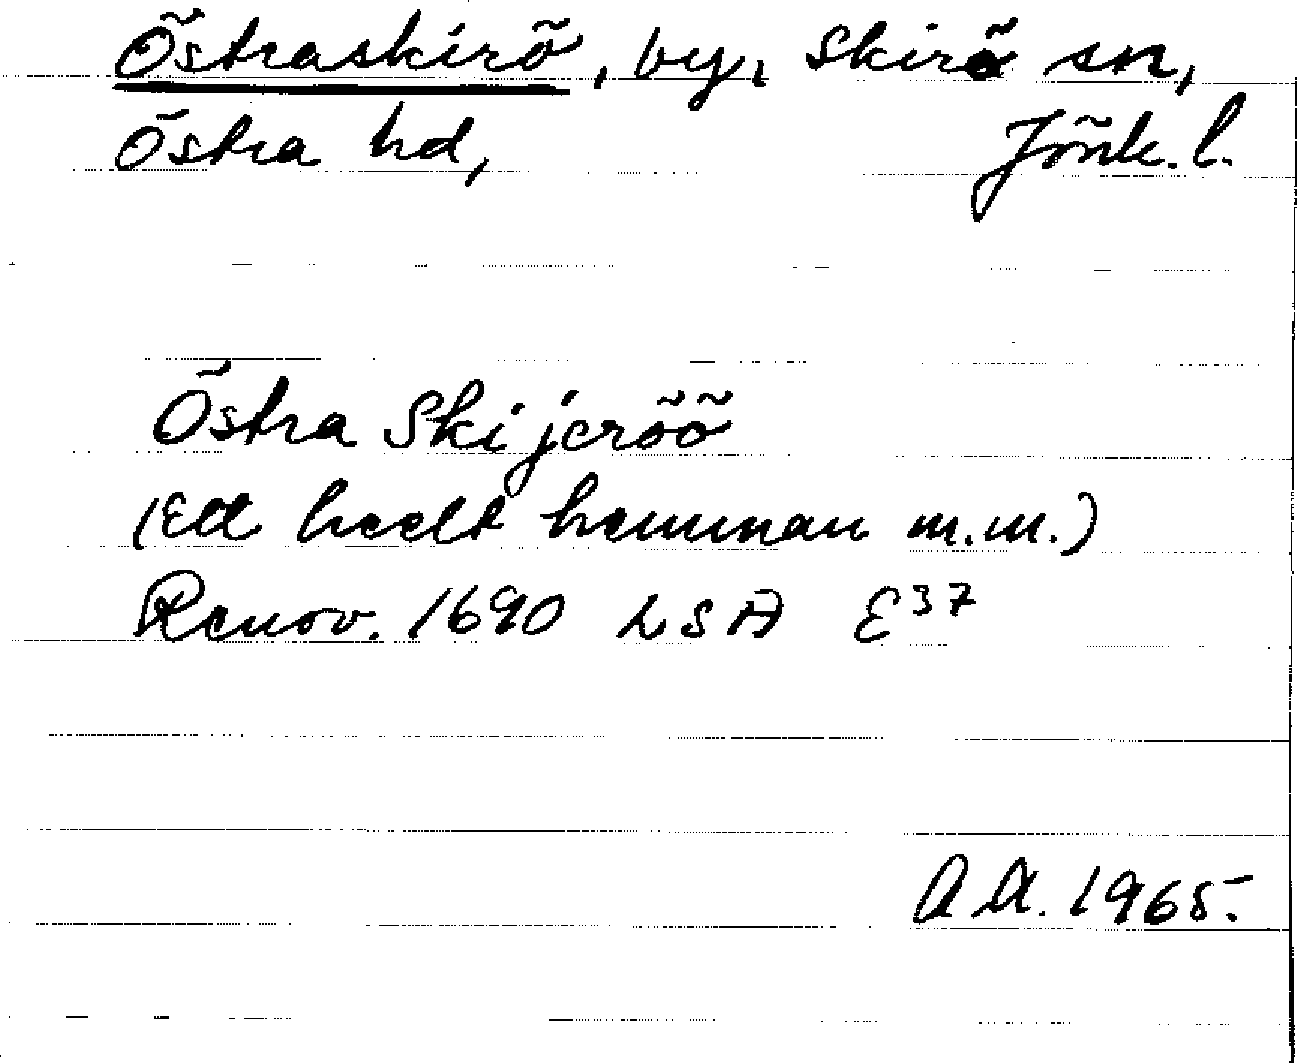 Östraskirö, by, Skirö sn,
Östra hd, Jönk. l.
Östra Skijeröö
(Ett heelt hemman m.m.)
Renov. 1690 LSA E37
A.A. 1965.